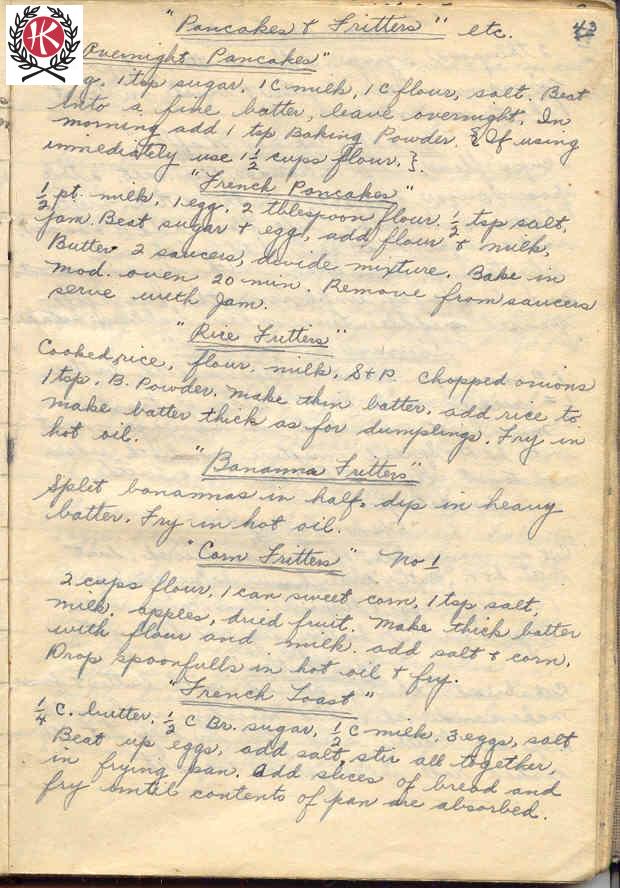 "Pancakes & Fritters" etc. 43
Overnight Pancakes"
g, 1 tsp sugar, 1 C milk, 1 C flour, salt. Beat
into a fine batter, leave overnight. In
morning add 1 tsp Baking Powder. {If using
immediately use 1 1/2 cups flour.}.
"French Pancakes"
1/2 pt. milk, 1 egg, 2 tblespoon flour. 1/2 tsp salt,
jam. Beat sugar & egg, add flour & milk,
Butter 2 saucers, divide mixture. Bake in
mod. oven 20 min. Remove from saucers
serve with Jam.
"Rice Fritters"
Cooked rice, flour, milk, S+P. chopped onions
1 tsp. B. Powder. Make thin batter, add rice to
make batter thick as for dumplings. Fry in
hot oil.
"Bananna Fritters"
Split banannas in half, dip in heavy
batter. Fry in hot oil.
"Corn Fritters" No 1
2 cups flour, 1 can sweet corn, 1 tsp salt,
milk. apples, dried fruit. Make thick batter
with flour and milk. add salt & corn.
Drop spoonfulls in hot oil & fry.
"French Toast"
1/4 C. butter, 1/2 C Br. sugar, 1/2 C milk, 3 eggs, salt
Beat up eggs, add salt, stir all together,
in frying pan. Add slices of bread and
fry until contents of pan are absorbed.